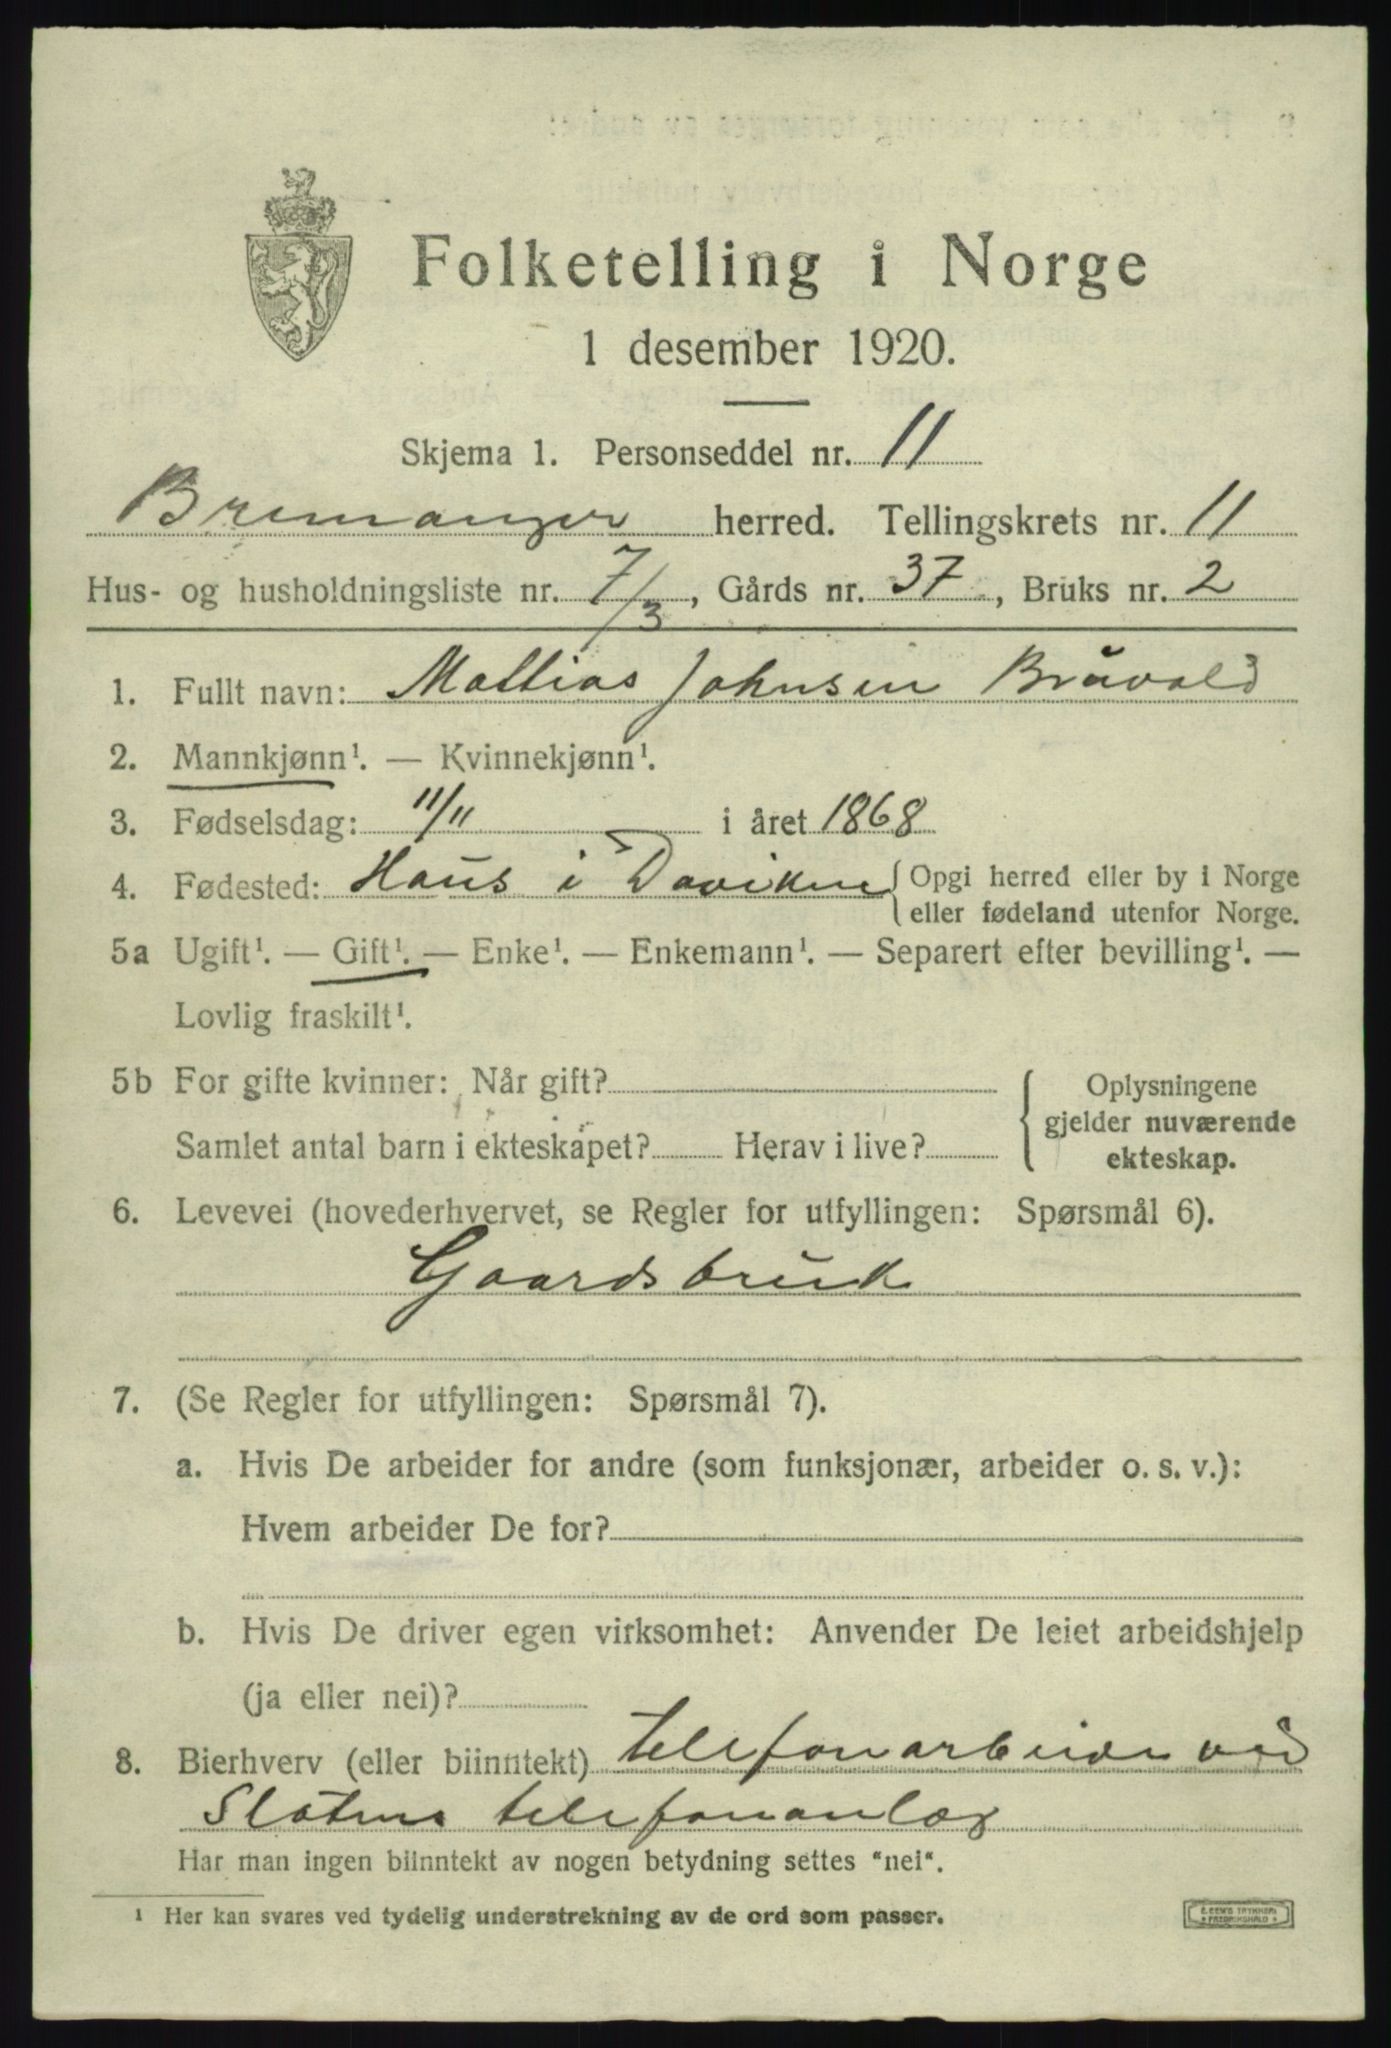 Folketelling i Norge
1 desember 1920.
Skjema 1. Personseddel nr. 11
Bremanger herred. Tellingskrets nr. 11
Hus- og husholdningsliste nr. 7/3, Gårds nr. 37, Bruks nr. 2
1. Fullt navn: Mattias Johnsen Bruvold
2. Mannkjønn¹. — Kvinnekjønn¹.
3. Fødselsdag: 11/11 i året 1868
4. Fødested: Haus i Daviken { Opgi herred eller by i Norge
eller fødeland utenfor Norge.
5a Ugift¹. — Gift¹. — Enke¹. — Enkemann¹. — Separert efter bevilling¹. —
Lovlig fraskilt¹.
5b For gifte kvinner: Når gift? { Oplysningene
gjelder nuværende
Samlet antal barn i ekteskapet? Herav i live? ekteskap.
6. Levevei (hovederhvervet, se Regler for utfyllingen: Spørsmål 6).
Gaardsbruk
7. (Se Regler for utfyllingen: Spørsmål 7).
a. Hvis De arbeider for andre (som funksjonær, arbeider o. s. v.):
Hvem arbeider De for?
b. Hvis De driver egen virksomhet: Anvender De leiet arbeidshjelp
(ja eller nei)?
8. Bierhverv (eller biinntekt) telefonarbeide ved
Statens telefonanlæg
Har man ingen biinntekt av nogen betydning settes "nei".
¹ Her kan svares ved tydelig understrekning av de ord som passer.